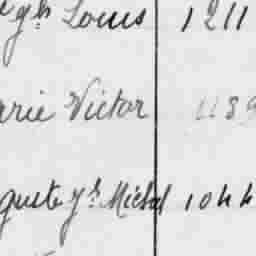 gh Louis 1211
arie Victor 1189
guste Jh Michel 1044